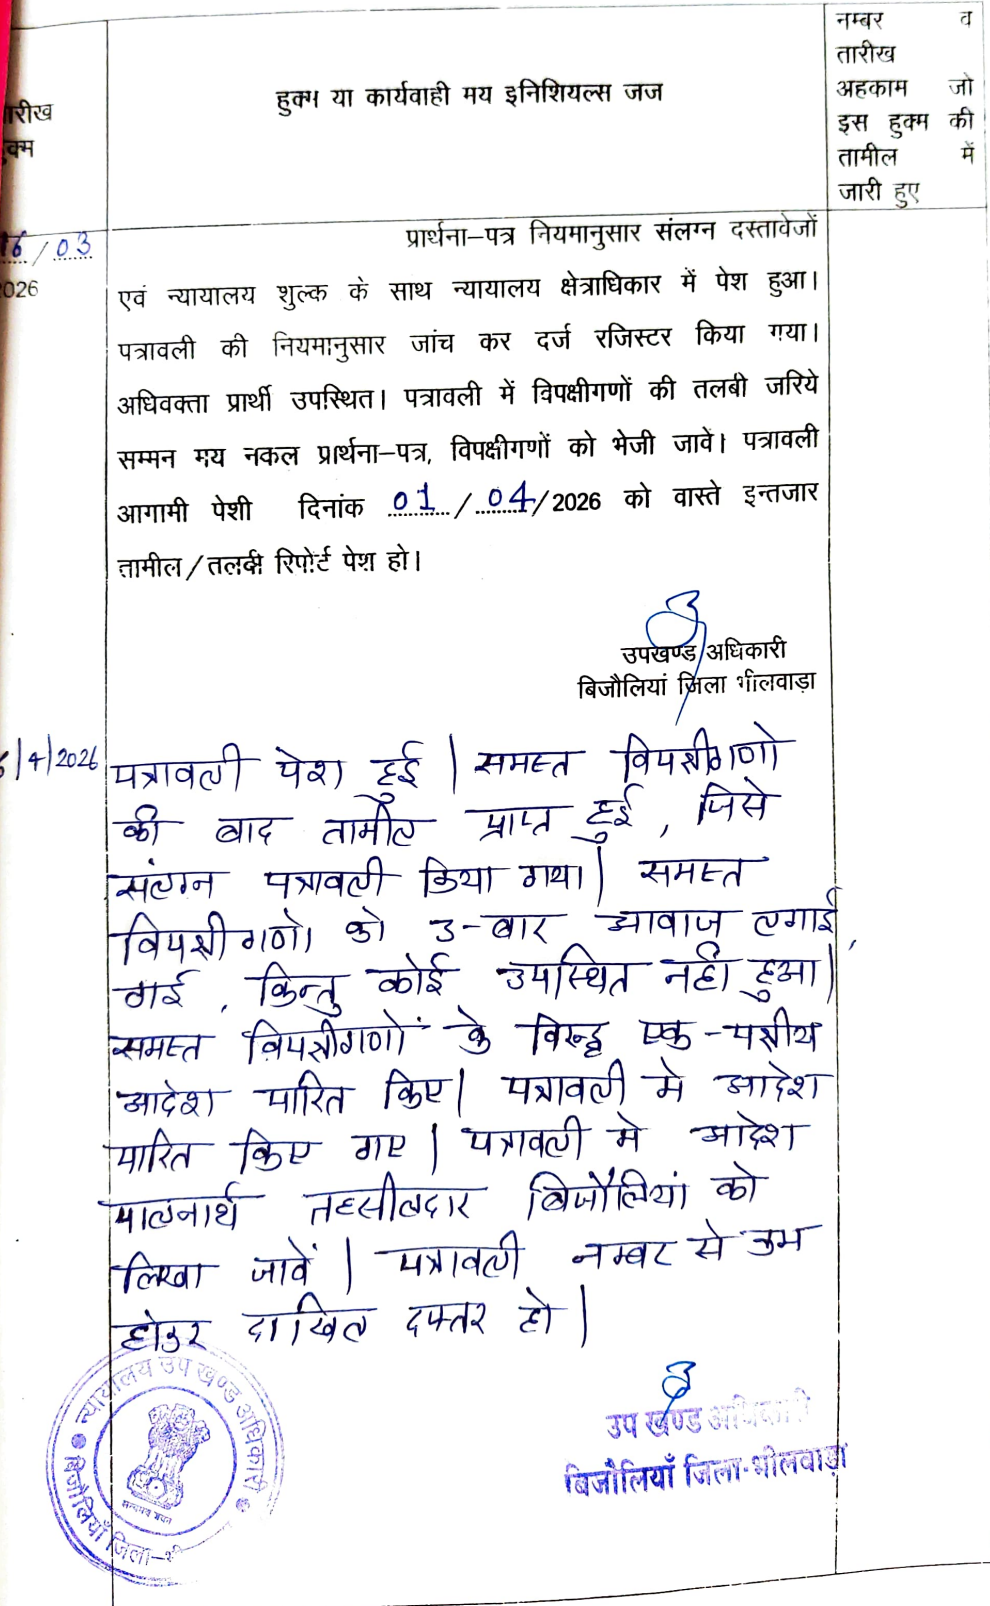 तारीख
हुक्म
हुक्म या कार्यवाही मय इनिशियल्स जज
नम्बर व
तारीख
अहकाम जो
इस हुक्म की
तामील में
जारी हुए
16/03
2026
प्रार्थना–पत्र नियमानुसार संलग्न दस्तावेजों
एवं न्यायालय शुल्क के साथ न्यायालय क्षेत्राधिकार में पेश हुआ।
पत्रावली की नियमानुसार जांच कर दर्ज रजिस्टर किया गया।
अधिवक्ता प्रार्थी उपस्थित। पत्रावली में विपक्षीगणों की तलबी जरिये
सम्मन मय नकल प्रार्थना–पत्र, विपक्षीगणों को भेजी जावें। पत्रावली
आगामी पेशी दिनांक 01/04/2026 को वास्ते इन्तजार
तामील/तलबी रिपोर्ट पेश हो।
उपखण्ड अधिकारी
बिजौलियां जिला भीलवाड़ा
6/4/2026
पत्रावली पेश हुई। समस्त विपक्षीगणो
की बाद तामील प्राप्त हुई, जिसे
संलग्न पत्रावली किया गया। समस्त
विपक्षीगणो को 3-बार आवाज लगाई,
गई, किन्तु कोई उपस्थित नहीं हुआ।
समस्त विपक्षीगणों के विरुद्ध एक-पक्षीय
आदेश पारित किए। पत्रावली मे आदेश
पारित किए गए। पत्रावली मे आदेश
पालनार्थ तहसीलदार बिजौलियां को
लिखा जावें। पत्रावली नम्बर से कम
होकर दाखिल दफ्तर हो।
उप खण्ड अधिकारी
बिजौलियाँ जिला-भीलवाड़ा
न्यायालय उप खण्ड अधिकारी
बिजौलियाँ जिला-भी
सत्यमेव जयते